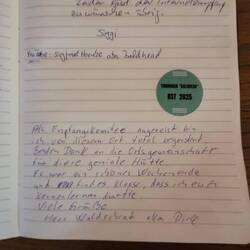 Leider ... der Internetempfang
zu wünschen übrig.
Siggi
BST 2025
Als Empfangskomitee angereist bin
ich von diesem Ort total begeistert.
Besten Dank an die Ortsgemeinschaft
für diese geniale Hütte.
Es war ein schönes Wochenende
und klasse, dass ich euch
kennenlernen durfte.
Viele Grüße
Herr Waldschrat aka Dirk